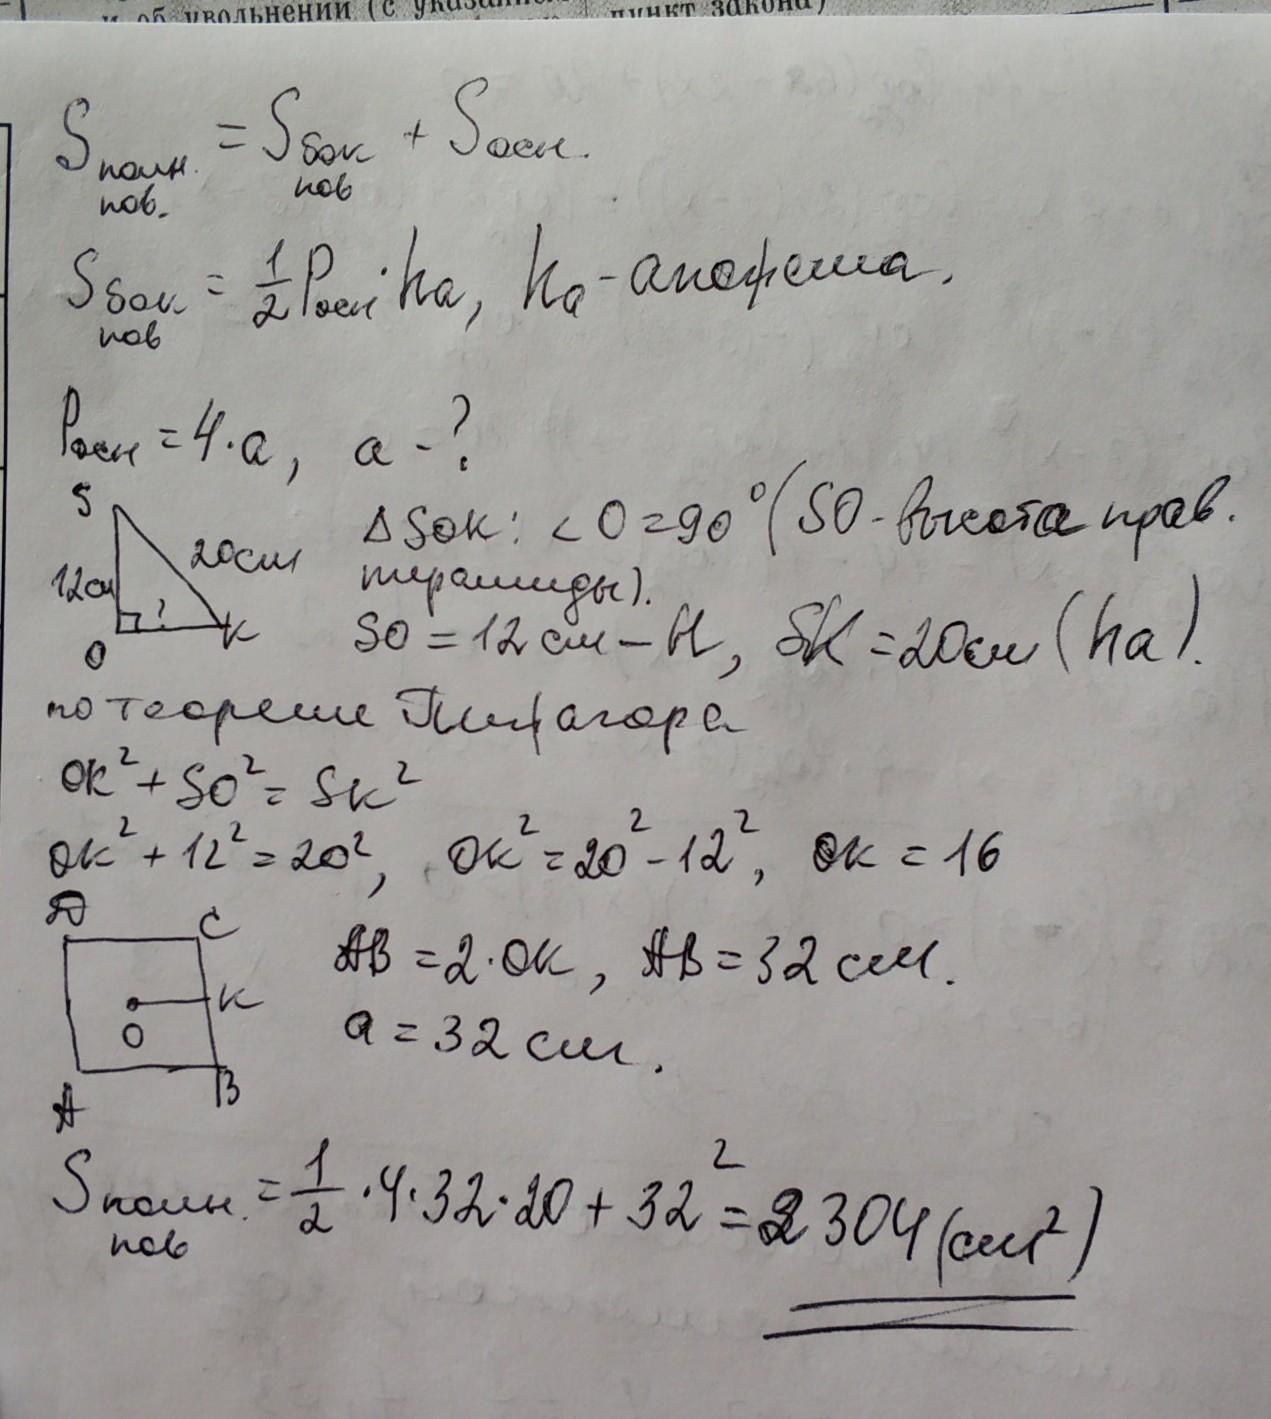 и об увольнении (с указанием
пункт закона)
Sполн. пов. = Sбок пов + Sосн.
Sбок пов = 1/2 Pосн · ha, ha - апофема.
Pосн = 4·a, a - ?
S
12см
20см
?
O
K
ΔSOK: <O=90° (SO-высота прав.
пирамиды).
SO = 12 см – H, SK = 20см (ha).
по теореме Пифагора
OK² + SO² = SK²
OK² + 12² = 20², OK² = 20² - 12², OK = 16
D
C
K
O
A
B
AB = 2·OK, AB = 32 см.
a = 32 см.
Sполн. пов = 1/2 ·4·32·20 + 32² = 2304 (см²)